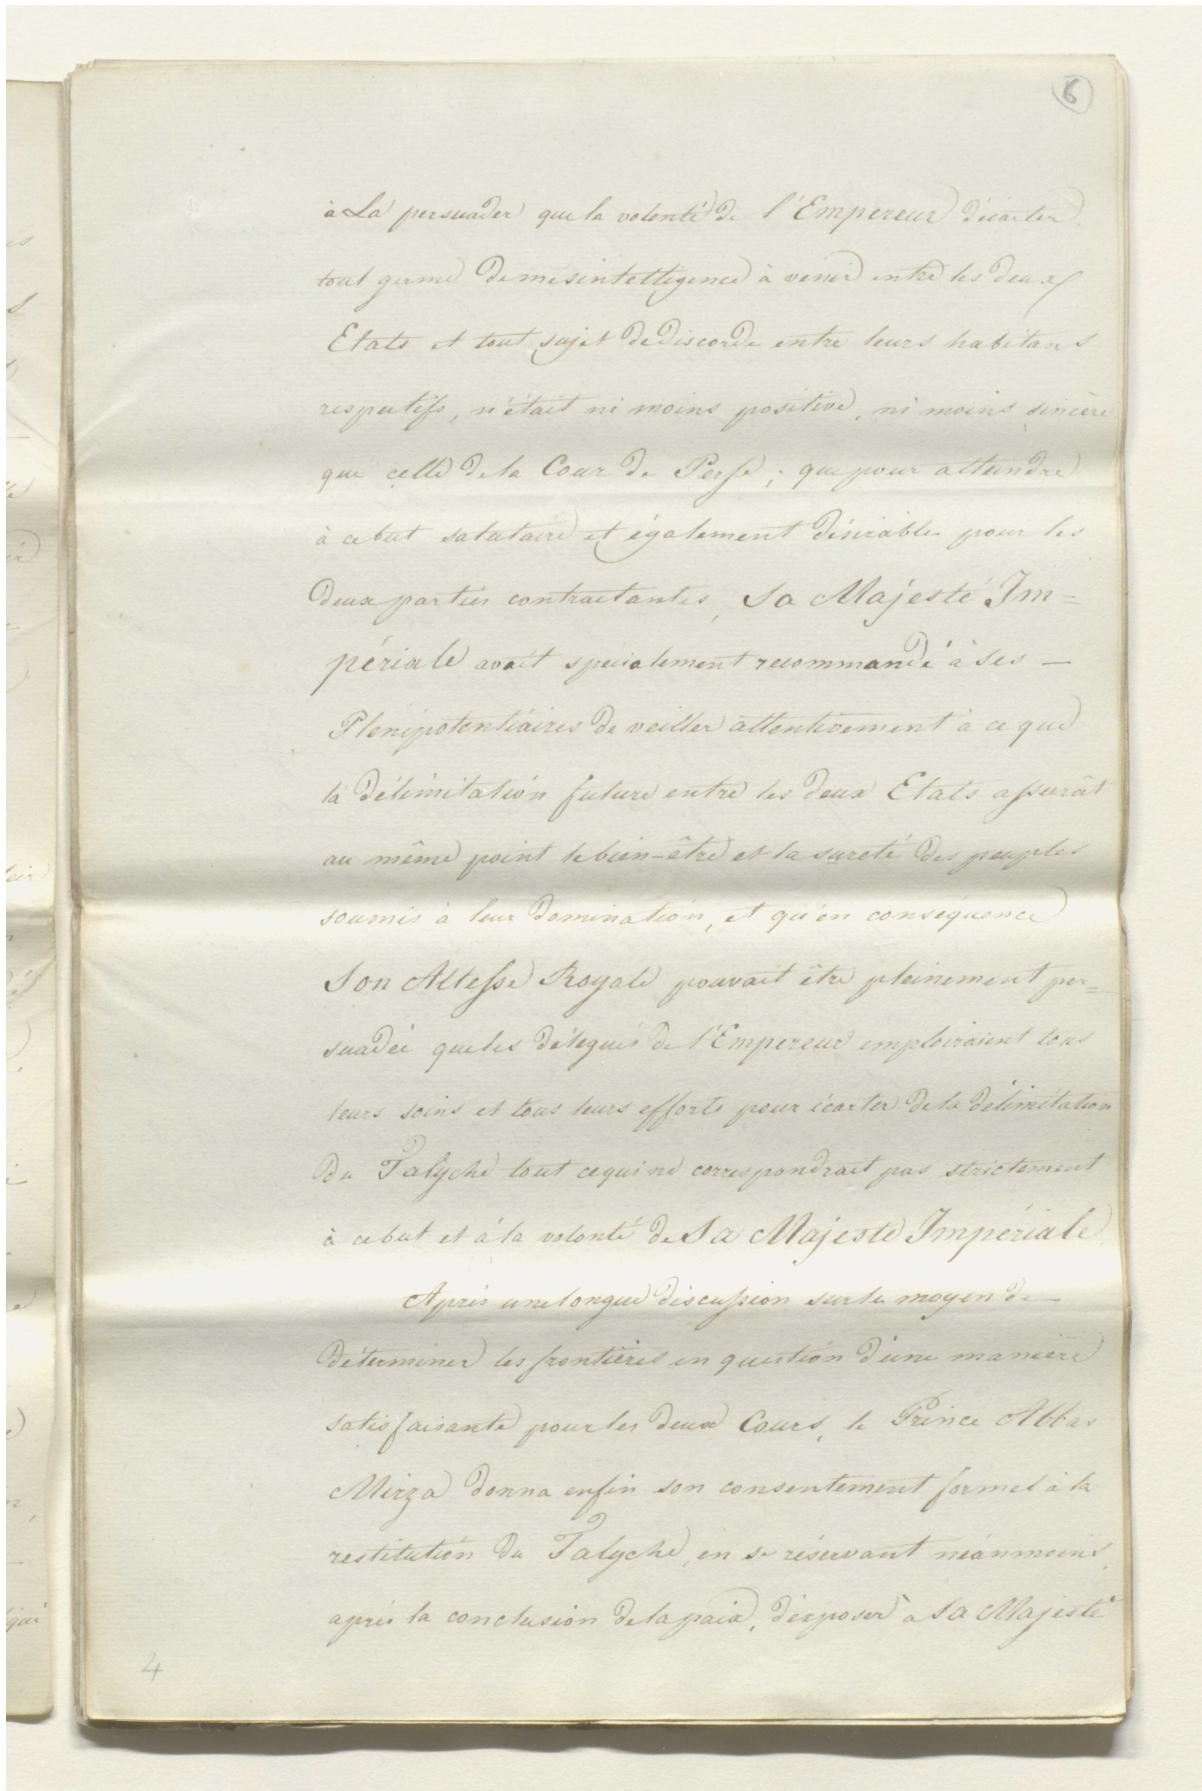 6
à La persuader que la volonté de l'Empereur d'écarter
tout germe de mésintelligence à venir entre les deux
Etats et tout sujet de discorde entre leurs habitans
respectifs, n'était ni moins positive, ni moins sincère
que celle de la Cour de Perse; que pour atteindre
à ce but salutaire et également désirable pour les
deux parties contractantes, Sa Majesté Im=
périale avait spécialement recommandé à Ses —
Plénipotentiaires de veiller attentivement à ce que
la délimitation future entre les deux Etats assurât
au même point le bien-être et la sureté des peuples
soumis à leur domination, et qu'en conséquence
Son Altesse Royale pouvait être pleinement per=
suadée que les délegués de l'Empereur emploiraient tous
leurs soins et tous leurs efforts pour écarter de la délimitation
du Talyche tout ce qui ne correspondrait pas strictement
à ce but et à la volonté de Sa Majesté Impériale.
Après une longue discussion sur le moyen de —
déterminer les frontières en question d'une manière
satisfaisante pour les deux Cours, le Prince Abbas
Mirza donna enfin son consentement formel à la
restitution du Talyche, en se réservant néanmoins,
après la conclusion de la paix, d'exposer à Sa Majesté
4